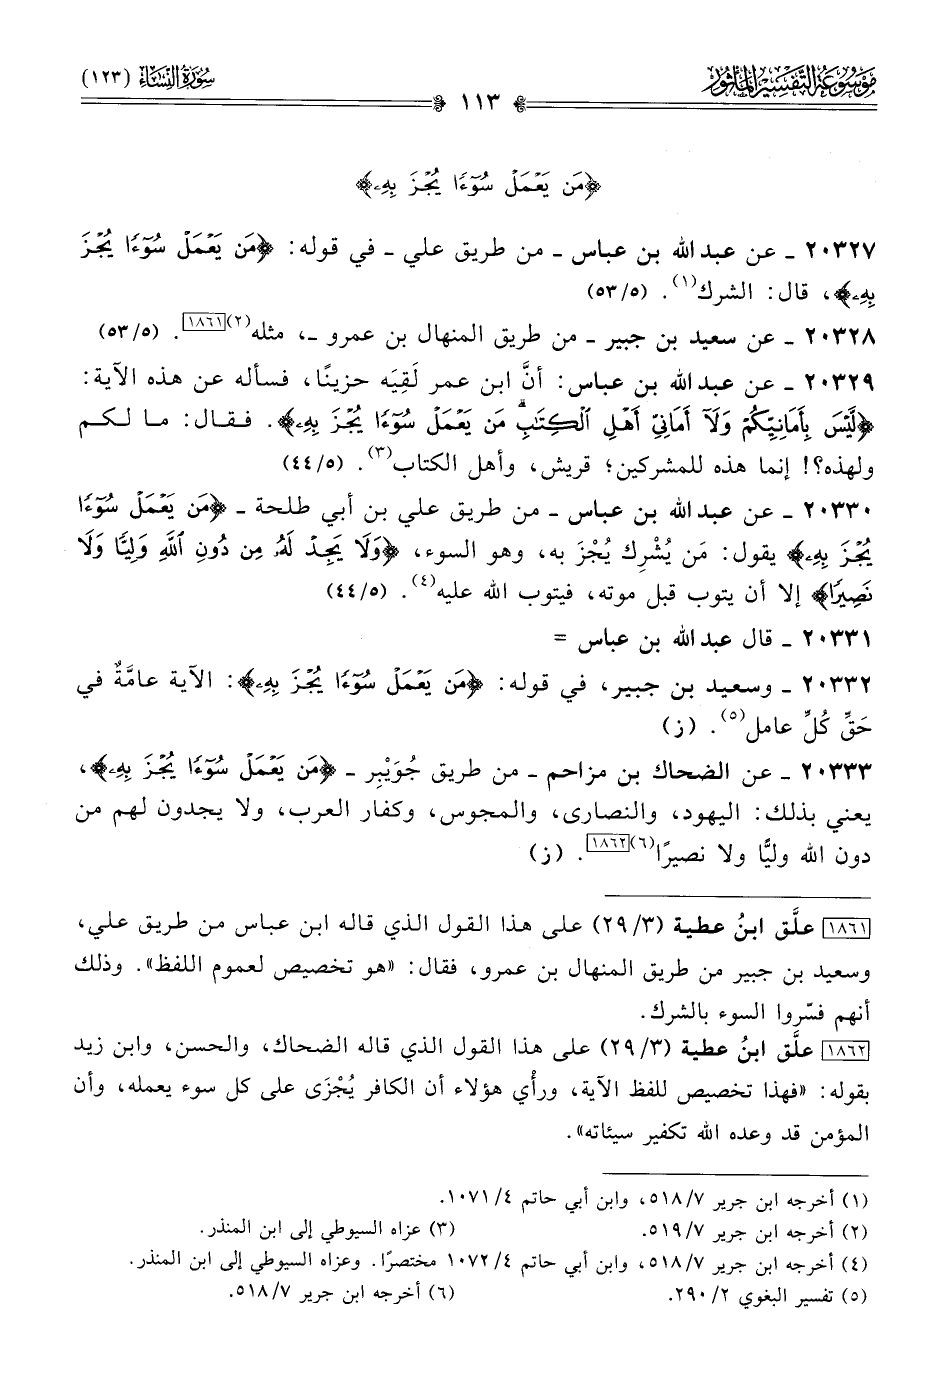 مَوْسُوعَة التَّفْسِيْر المَأْثُور
١١٣
سُورَةُ النِّسَاءِ (١٢٣)
﴿مَن يَعْمَلْ سُوٓءًا يُجْزَ بِهِۦ﴾
٢٠٣٢٧ ـ عن عبد الله بن عباس ـ من طريق علي ـ في قوله: ﴿مَن يَعْمَلْ سُوٓءًا يُجْزَ
بِهِۦ﴾، قال: الشرك(١). (٥٣/٥)
٢٠٣٢٨ ـ عن سعيد بن جبير ـ من طريق المنهال بن عمرو ـ، مثله(٢)[١٨٦١]. (٥٣/٥)
٢٠٣٢٩ ـ عن عبد الله بن عباس: أنَّ ابن عمر لَقِيَه حزينًا، فسأله عن هذه الآية:
﴿لَّيْسَ بِأَمَانِيِّكُمْ وَلَآ أَمَانِيِّ أَهْلِ ٱلْكِتَٰبِۗ مَن يَعْمَلْ سُوٓءًا يُجْزَ بِهِۦ﴾. فقال: ما لكم
ولهذه؟! إنما هذه للمشركين؛ قريش، وأهل الكتاب(٣). (٤٤/٥)
٢٠٣٣٠ ـ عن عبد الله بن عباس ـ من طريق علي بن أبي طلحة ـ ﴿مَن يَعْمَلْ سُوٓءًا
يُجْزَ بِهِۦ﴾ يقول: مَن يُشْرِك يُجْزَ به، وهو السوء، ﴿وَلَا يَجِدْ لَهُۥ مِن دُونِ ٱللَّهِ وَلِيًّا وَلَا
نَصِيرًا﴾ إلا أن يتوب قبل موته، فيتوب الله عليه(٤). (٤٤/٥)
٢٠٣٣١ ـ قال عبد الله بن عباس =
٢٠٣٣٢ ـ وسعيد بن جبير، في قوله: ﴿مَن يَعْمَلْ سُوٓءًا يُجْزَ بِهِۦ﴾: الآية عامَّةٌ في
حَقِّ كُلِّ عامل(٥). (ز)
٢٠٣٣٣ ـ عن الضحاك بن مزاحم ـ من طريق جُوَيْبِر ـ ﴿مَن يَعْمَلْ سُوٓءًا يُجْزَ بِهِۦ﴾،
يعني بذلك: اليهود، والنصارى، والمجوس، وكفار العرب، ولا يجدون لهم من
دون الله وليًّا ولا نصيرًا(٦)[١٨٦٢]. (ز)
[١٨٦١] علَّق ابنُ عطية (٢٩/٣) على هذا القول الذي قاله ابن عباس من طريق علي،
وسعيد بن جبير من طريق المنهال بن عمرو، فقال: «هو تخصيص لعموم اللفظ». وذلك
أنهم فسّروا السوء بالشرك.
[١٨٦٢] علَّق ابنُ عطية (٢٩/٣) على هذا القول الذي قاله الضحاك، والحسن، وابن زيد
بقوله: «فهذا تخصيص للفظ الآية، ورأْي هؤلاء أن الكافر يُجْزَى على كل سوء يعمله، وأن
المؤمن قد وعده الله تكفير سيئاته».
(١) أخرجه ابن جرير ٥١٨/٧، وابن أبي حاتم ١٠٧١/٤.
(٢) أخرجه ابن جرير ٥١٩/٧. (٣) عزاه السيوطي إلى ابن المنذر.
(٤) أخرجه ابن جرير ٥١٨/٧، وابن أبي حاتم ١٠٧٢/٤ مختصرًا. وعزاه السيوطي إلى ابن المنذر.
(٥) تفسير البغوي ٢٩٠/٢. (٦) أخرجه ابن جرير ٥١٨/٧.